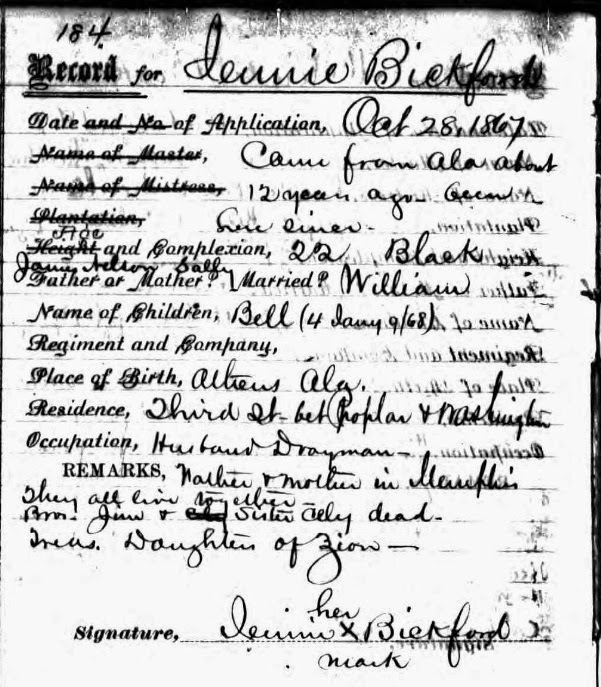 184
Record for Jennie Bickford
Date and No of Application, Oct 28, 1867
Name of Master, Came from Ala about
Name of Mistress, 12 years ago
Plantation, here since -
Age
Height and Complexion, 22 Black
Nelson Sally
Father or Mother? Married? William
Name of Children, Bell (4 Jany 9/68)
Regiment and Company,
Place of Birth, Athens Ala.
Residence, Third St. bet Poplar & Washington
Occupation, Husband Drayman -
REMARKS, Father & mother in Memphis
They all live together -
Bros. Jim & Sister Cely dead -
Treas. Daughters of Zion -
her
Signature, Jennie X Bickford
mark